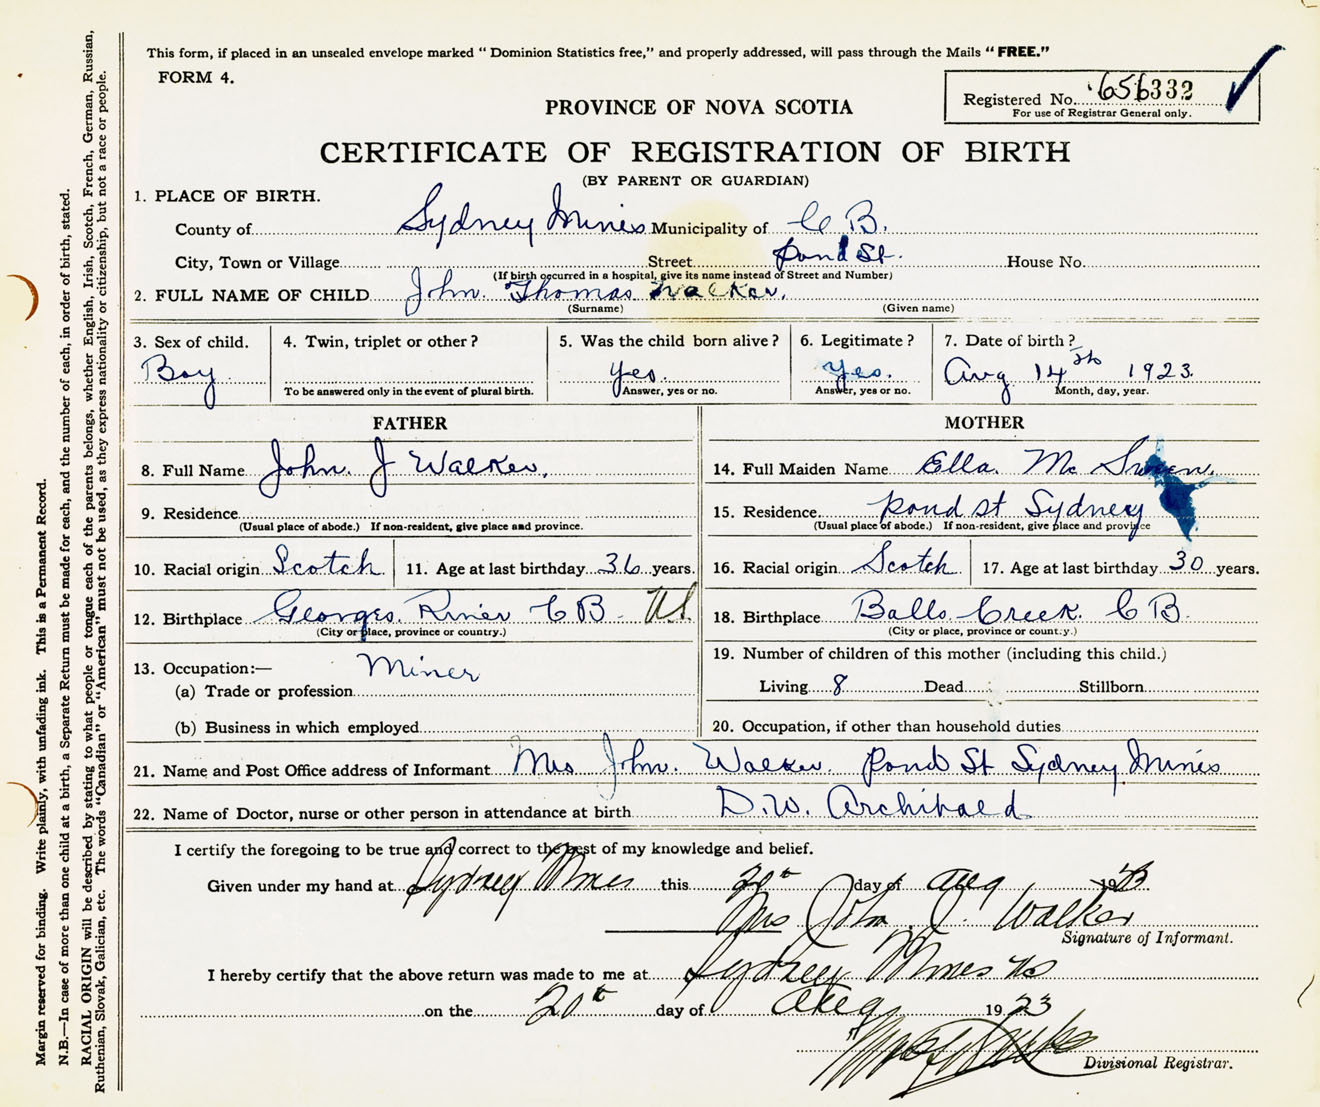 This form, if placed in an unsealed envelope marked " Dominion Statistics free," and properly addressed, will pass through the Mails " FREE."
FORM 4.
Registered No. 656332
For use of Registrar General only.
PROVINCE OF NOVA SCOTIA
CERTIFICATE OF REGISTRATION OF BIRTH
(BY PARENT OR GUARDIAN)
1. PLACE OF BIRTH.
County of Sydney Mines Municipality of C B.
City, Town or Village Street Pond St. House No.
(If birth occurred in a hospital, give its name instead of Street and Number)
2. FULL NAME OF CHILD John. Thomas Walker.
(Surname) (Given name)
3. Sex of child. 4. Twin, triplet or other ? 5. Was the child born alive ? 6. Legitimate ? 7. Date of birth ?
Boy yes. yes. Aug 14th 1923.
To be answered only in the event of plural birth. Answer, yes or no. Answer, yes or no. Month, day, year.
FATHER MOTHER
8. Full Name John. J Walker. 14. Full Maiden Name Ella. Mc Sween.
9. Residence 15. Residence Pond st Sydney
(Usual place of abode.) If non-resident, give place and province. (Usual place of abode.) If non-resident, give place and province
10. Racial origin Scotch 11. Age at last birthday 36 years. 16. Racial origin Scotch 17. Age at last birthday 30 years.
12. Birthplace Georges River C B. N.S. 18. Birthplace Balls Creek. C B.
(City or place, province or country.) (City or place, province or country.)
13. Occupation:— Miner 19. Number of children of this mother (including this child.)
(a) Trade or profession Living 8 Dead Stillborn
(b) Business in which employed 20. Occupation, if other than household duties
21. Name and Post Office address of Informant Mrs John. Walker. Pond St Sydney Mines
22. Name of Doctor, nurse or other person in attendance at birth D.W. Archibald
I certify the foregoing to be true and correct to the best of my knowledge and belief.
Given under my hand at Sydney Mines this 20th day of Aug 1923
Mrs John J. Walker
Signature of Informant.
I hereby certify that the above return was made to me at Sydney Mines NS
on the 20th day of Aug 1923
Divisional Registrar.
Margin reserved for binding. Write plainly, with unfading ink. This is a Permanent Record.
N.B.—In case of more than one child at a birth, a Separate Return must be made for each, and the number of each, in order of birth, stated.
RACIAL ORIGIN will be described by stating to what people or tongue each of the parents belongs, whether English, Irish, Scotch, French, German, Russian,
Ruthenian, Slovak, Galician, etc. The words "Canadian" or "American" must not be used, as they express nationality or citizenship, but not a race or people.